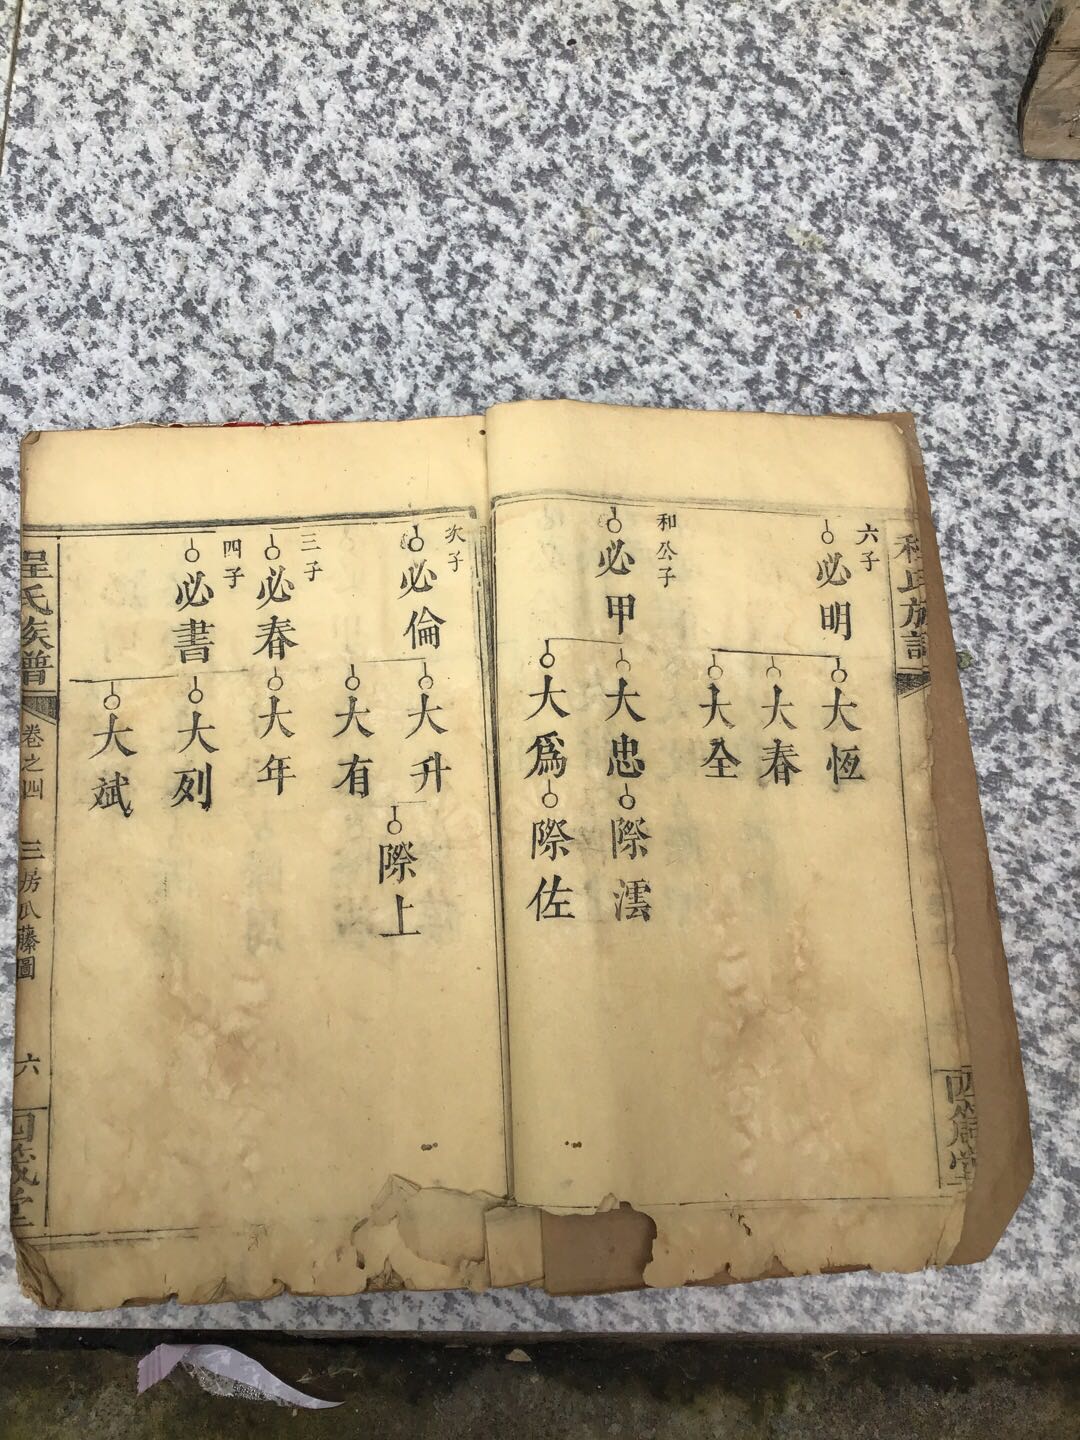 程氏族譜
四箴堂
六子
必明
大恆
大春
大全
和公子
必甲
大忠
際澐
大爲
際佐
次子
必倫
大升
際上
大有
三子
必春
大年
四子
必書
大列
大斌
程氏族譜
卷之四
三房瓜藤圖
六
四箴堂